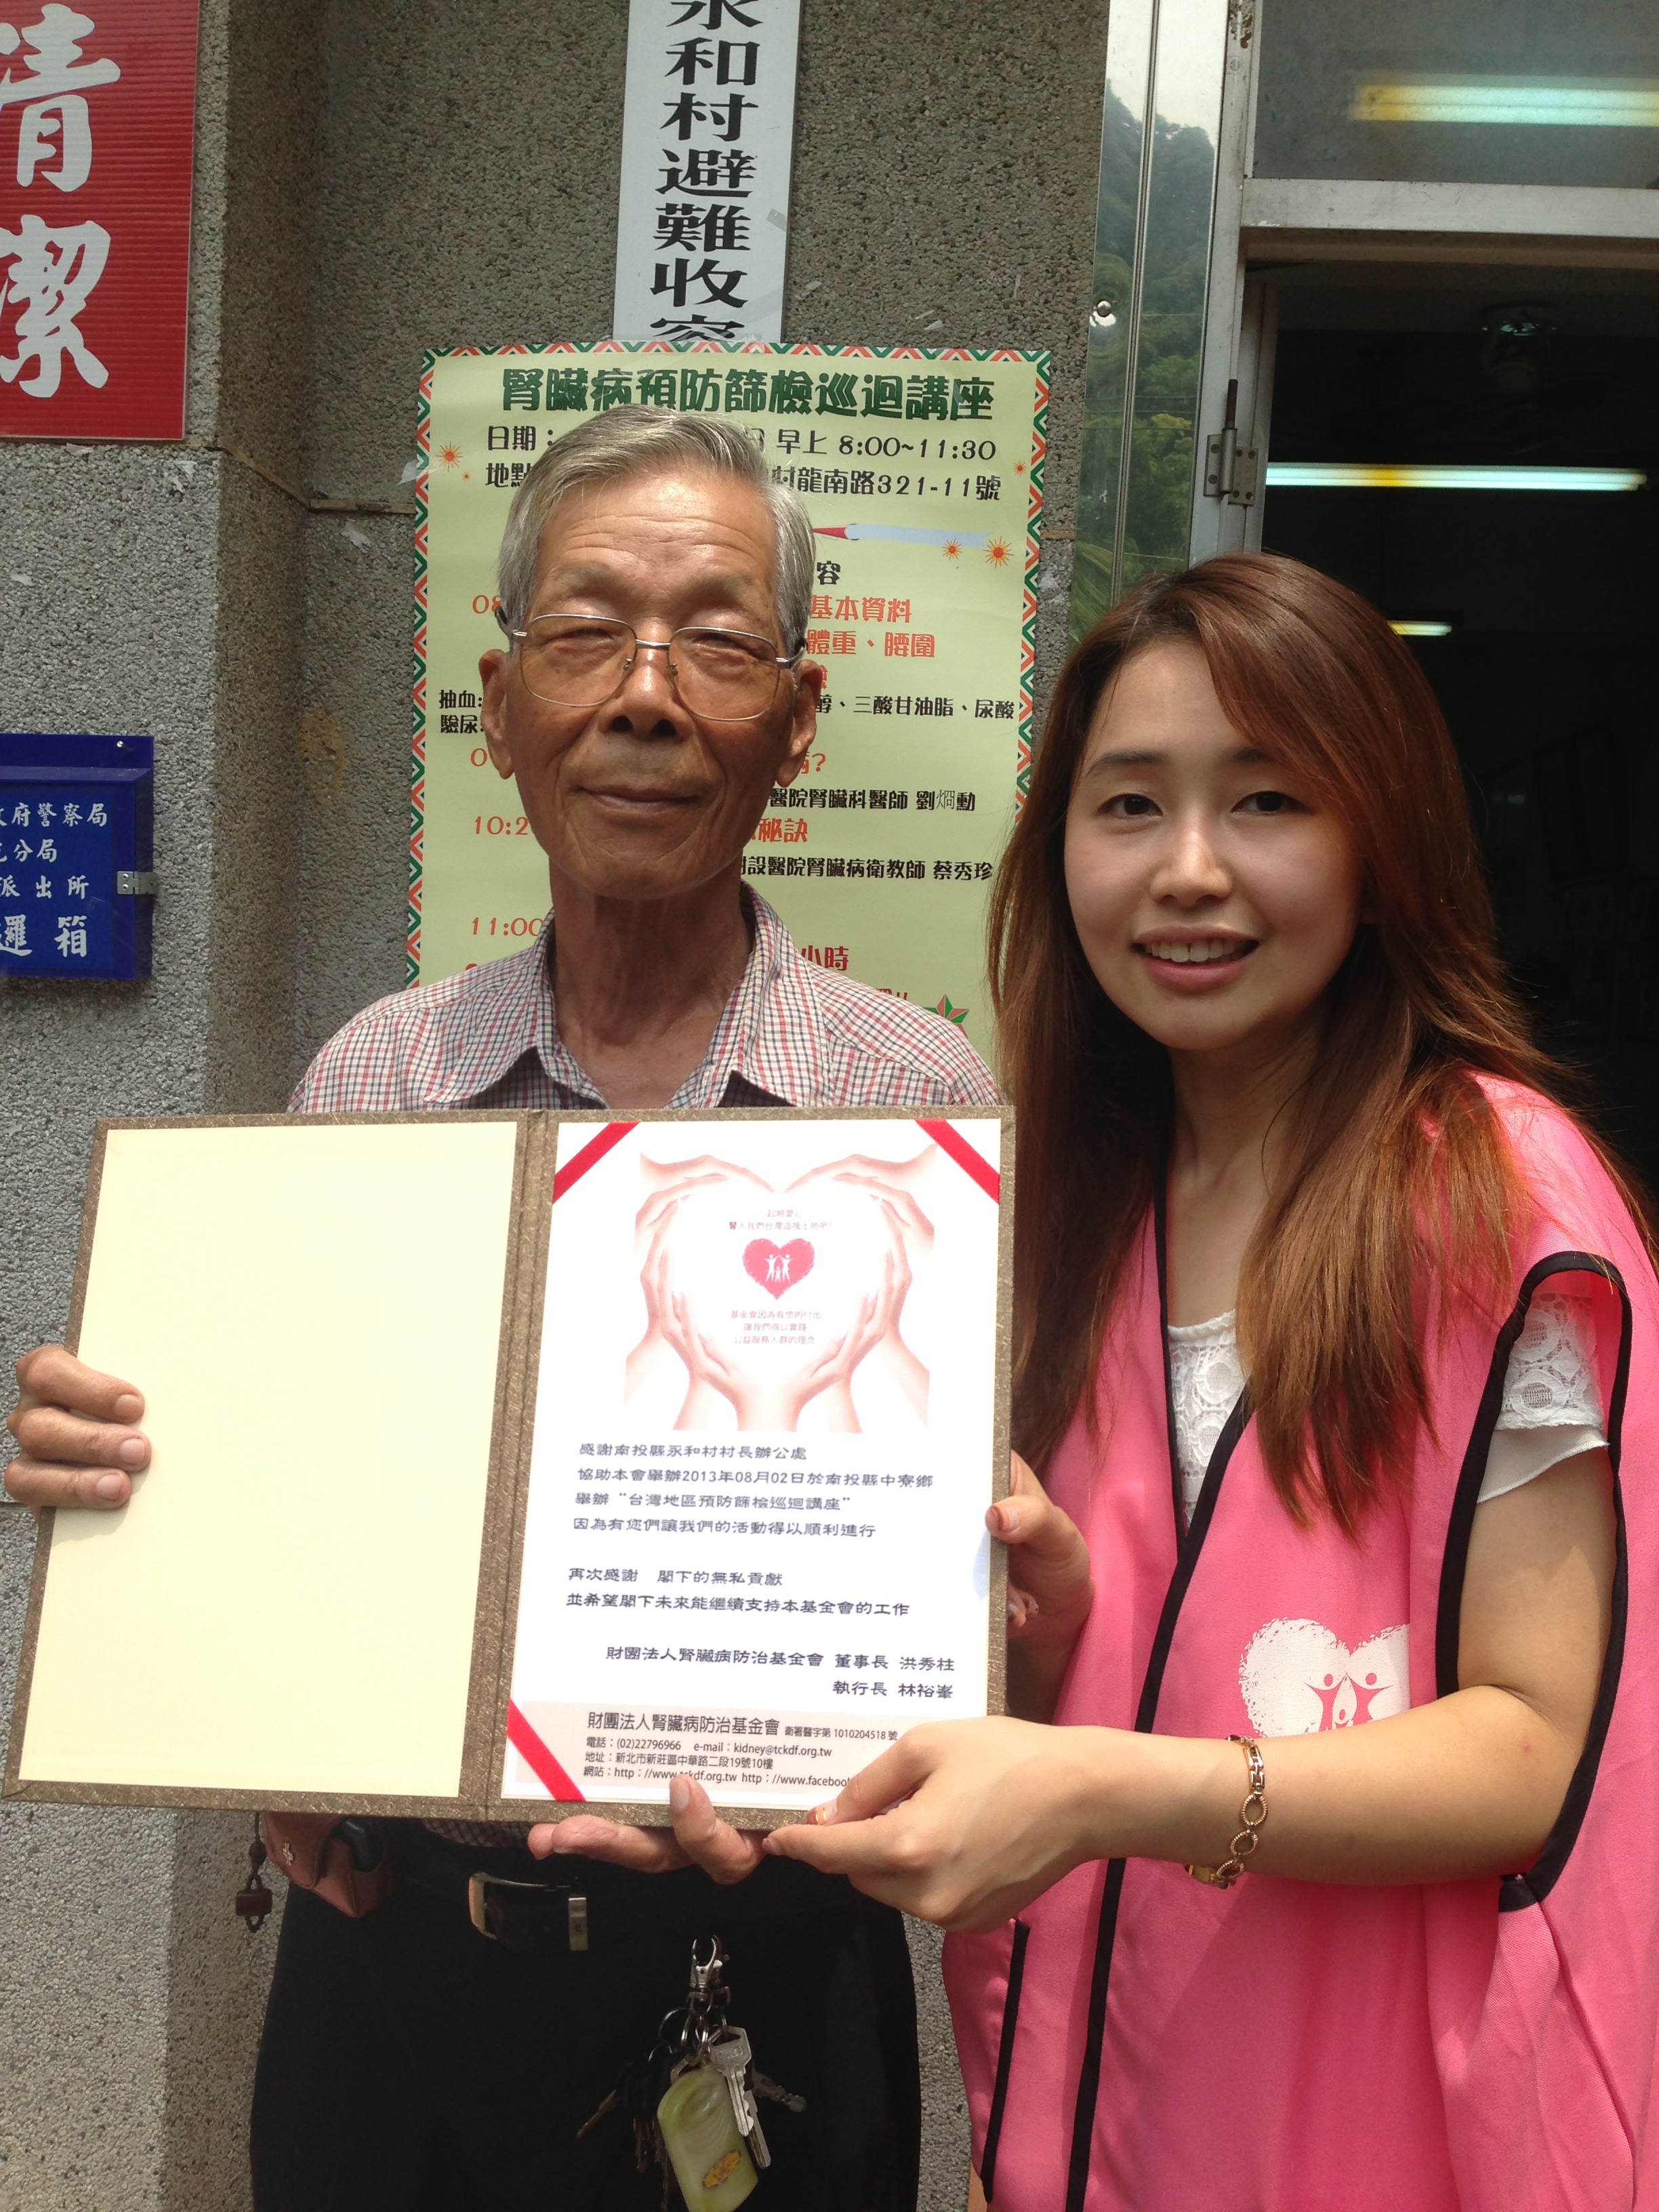 清潔
永和村避難收容
腎臟病預防篩檢巡迴講座
日期：
早上 8:00~11:30
地點
村龍南路321-11號
容
基本資料
體重、腰圍
抽血:
醇、三酸甘油脂、尿酸
驗尿:
病?
醫院腎臟科醫師 劉烱勳
10:2
秘訣
設醫院腎臟病衛教師 蔡秀珍
11:00
小時
府警察局
分局
派出所
邏箱
起將愛心
腎入我們台灣這塊土地吧!
基金會因為有您的付出
讓我們得以實踐
公益服務人群的理念
感謝南投縣永和村村長辦公處
協助本會舉辦2013年08月02日於南投縣中寮鄉
舉辦“台灣地區預防篩檢巡迴講座”
因為有您們讓我們的活動得以順利進行
再次感謝 閣下的無私貢獻
並希望閣下未來能繼續支持本基金會的工作
財團法人腎臟病防治基金會 董事長 洪秀柱
執行長 林裕峯
財團法人腎臟病防治基金會 衛署醫字第 1010204518 號
電話：(02)22796966 e-mail：kidney@tckdf.org.tw
地址：新北市新莊區中華路二段19號10樓
網站：http：//www.tckdf.org.tw http：//www.facebook